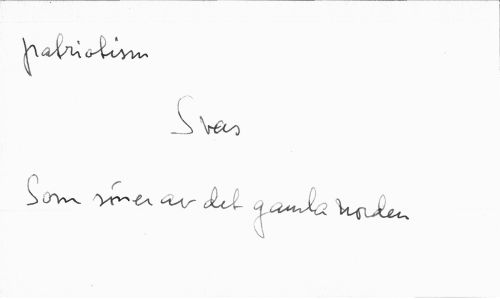 patriotism
Svas
Som söner av det gamla norden